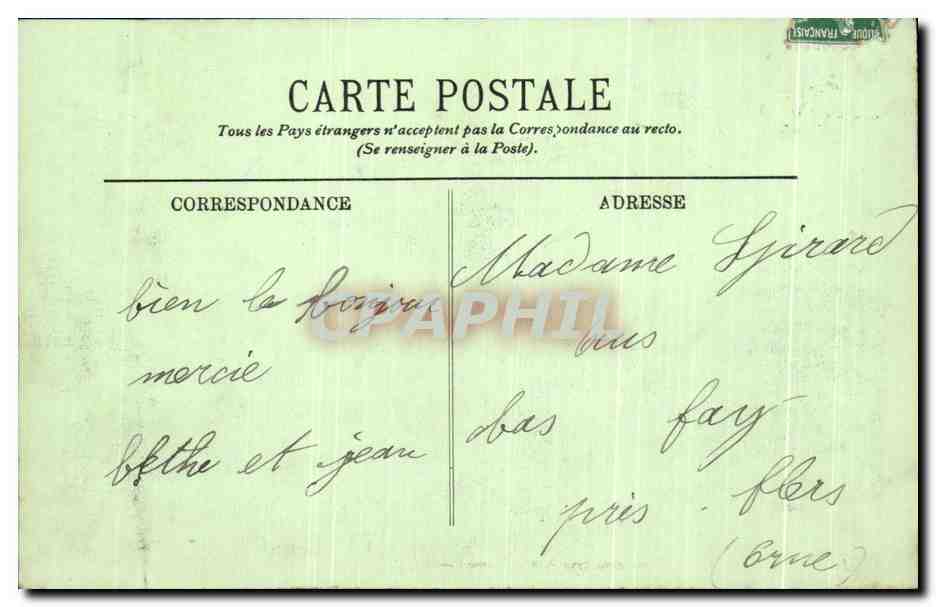 RÉPUBLIQUE FRANÇAISE
CARTE POSTALE
Tous les Pays étrangers n'acceptent pas la Correspondance au recto.
(Se renseigner à la Poste).
CORRESPONDANCE
bien le bonjour
mercie
bethe et jean
ADRESSE
Madame Girard
aus
bas fay
près flers
(Orne)
CPAPHIL